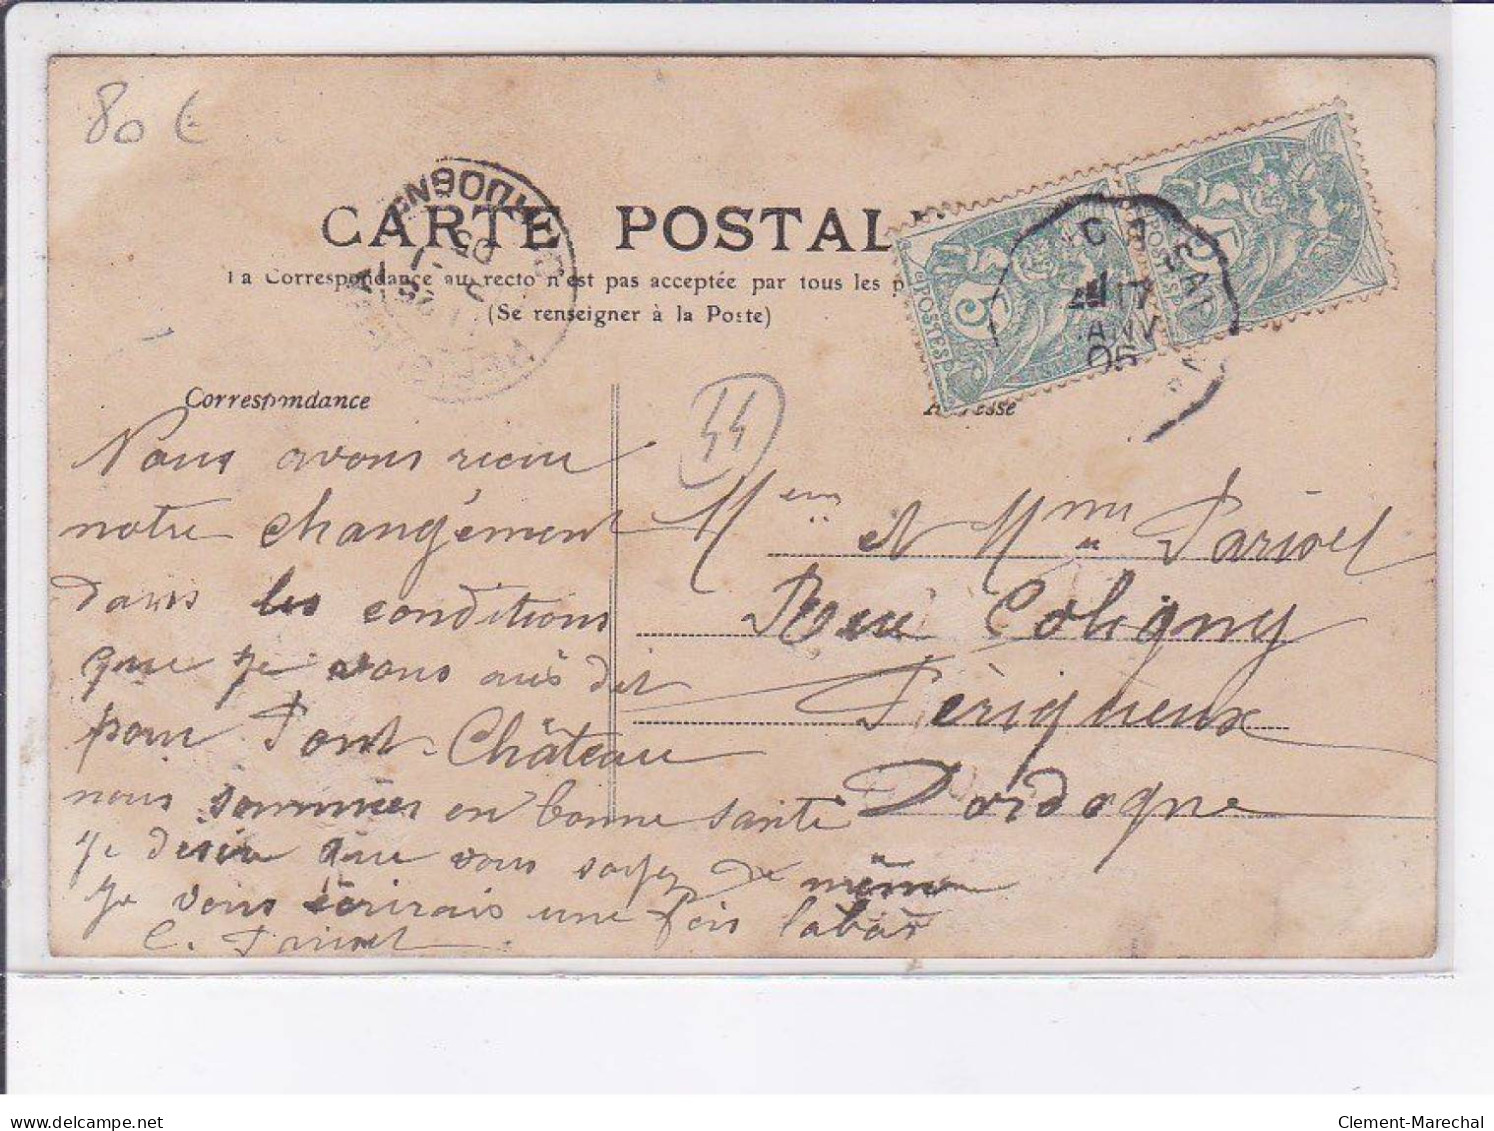 80 €
CARTE POSTAL
La Correspondance au recto n'est pas acceptée par tous les p
(Se renseigner à la Poste)
DORDOGNE
05
POSTES
5
POSTES
17
JANV
05
Correspondance
Adresse
44
Nous avons recu
notre changement
dans les conditions
que je vous ais dit
pour Pont-Château
nous sommes en bonne santé
je désire que vous soyez de même
je vous écrirais une fois labas
C. Parisot
et Mme Parisot
Rue Coligny
Périgueux
Dordogne
delcampe.net
Clement-Marechal